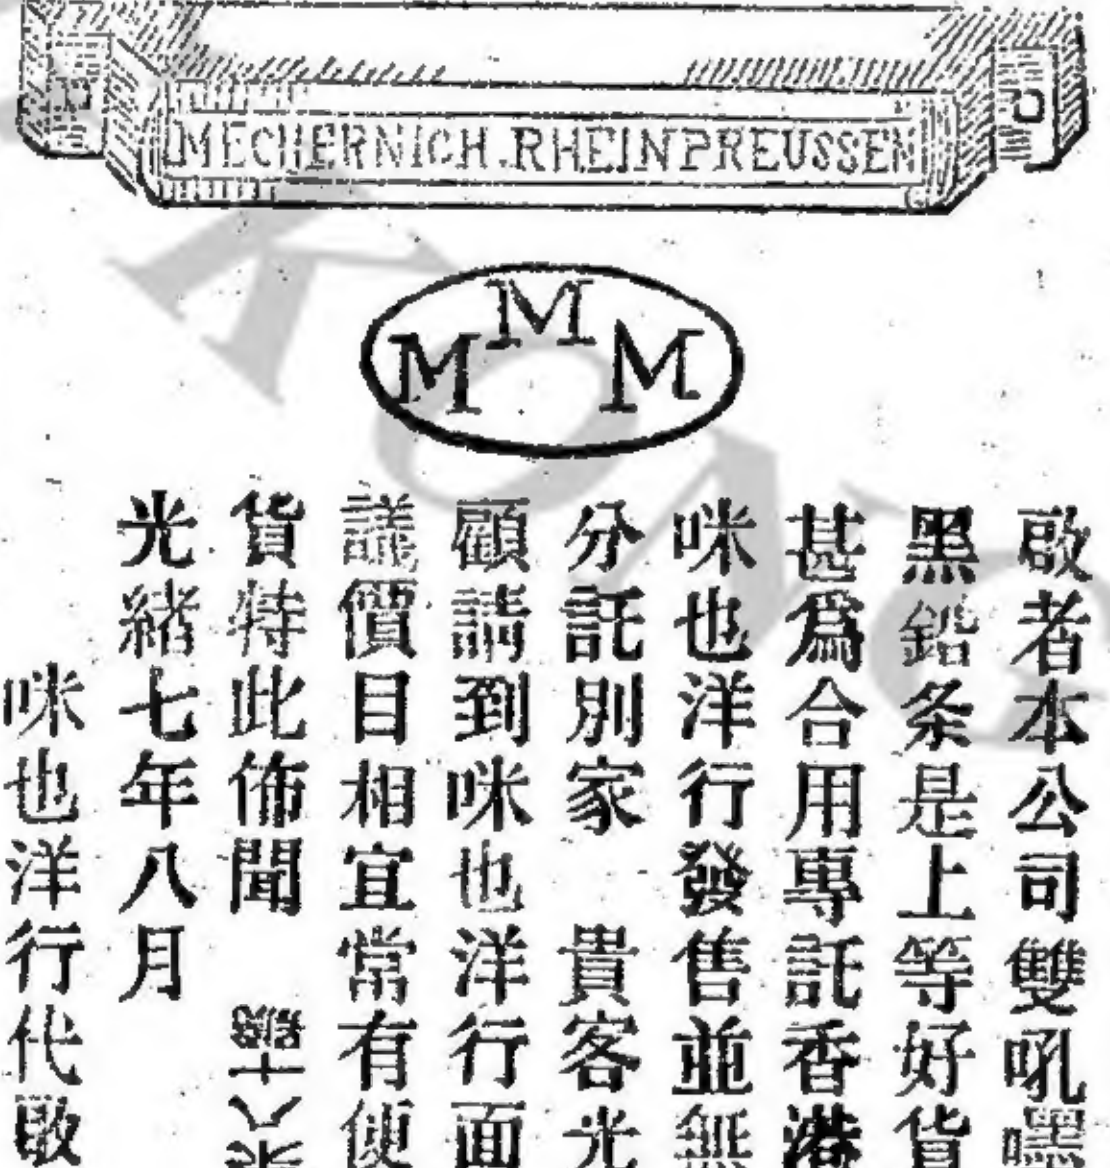 MECHERNICH.RHEINPREUSSEN
M M M
啟者本公司雙吼嘿
黑鉛条是上等好貨
甚爲合用專託香港
咪也洋行發售並無
分託別家 貴客光
顧請到咪也洋行面
議價目相宜常有便
貨特此佈聞
光緒七年八月
咪也洋行代啟
KONG